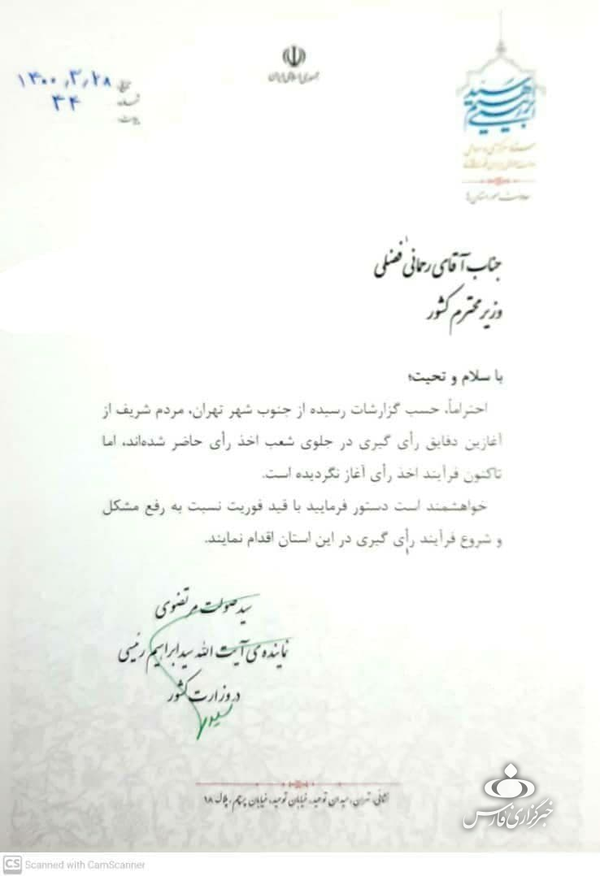 جمهوری اسلامی ایران
تاریخ: ۱۴۰۰,۳,۲۸
شماره: ۳۴
پیوست:
جناب آقای رحمانی فضلی
وزیر محترم کشور
با سلام و تحیت؛
احتراماً، حسب گزارشات رسیده از جنوب شهر تهران، مردم شریف از
آغازین دقایق رأی گیری در جلوی شعب اخذ رأی حاضر شده‌اند، اما
تاکنون فرآیند اخذ رأی آغاز نگردیده است.
خواهشمند است دستور فرمایید با قید فوریت نسبت به رفع مشکل
و شروع فرآیند رأی گیری در این استان اقدام نمایند.
سید صولت مرتضوی
نماینده‌ی آیت الله سید ابراهیم رئیسی
در وزارت کشور
نشانی: تهران، میدان توحید، خیابان توحید، خیابان پرچم، پلاک ۱۸
خبرگزاری فارس
CS Scanned with CamScanner